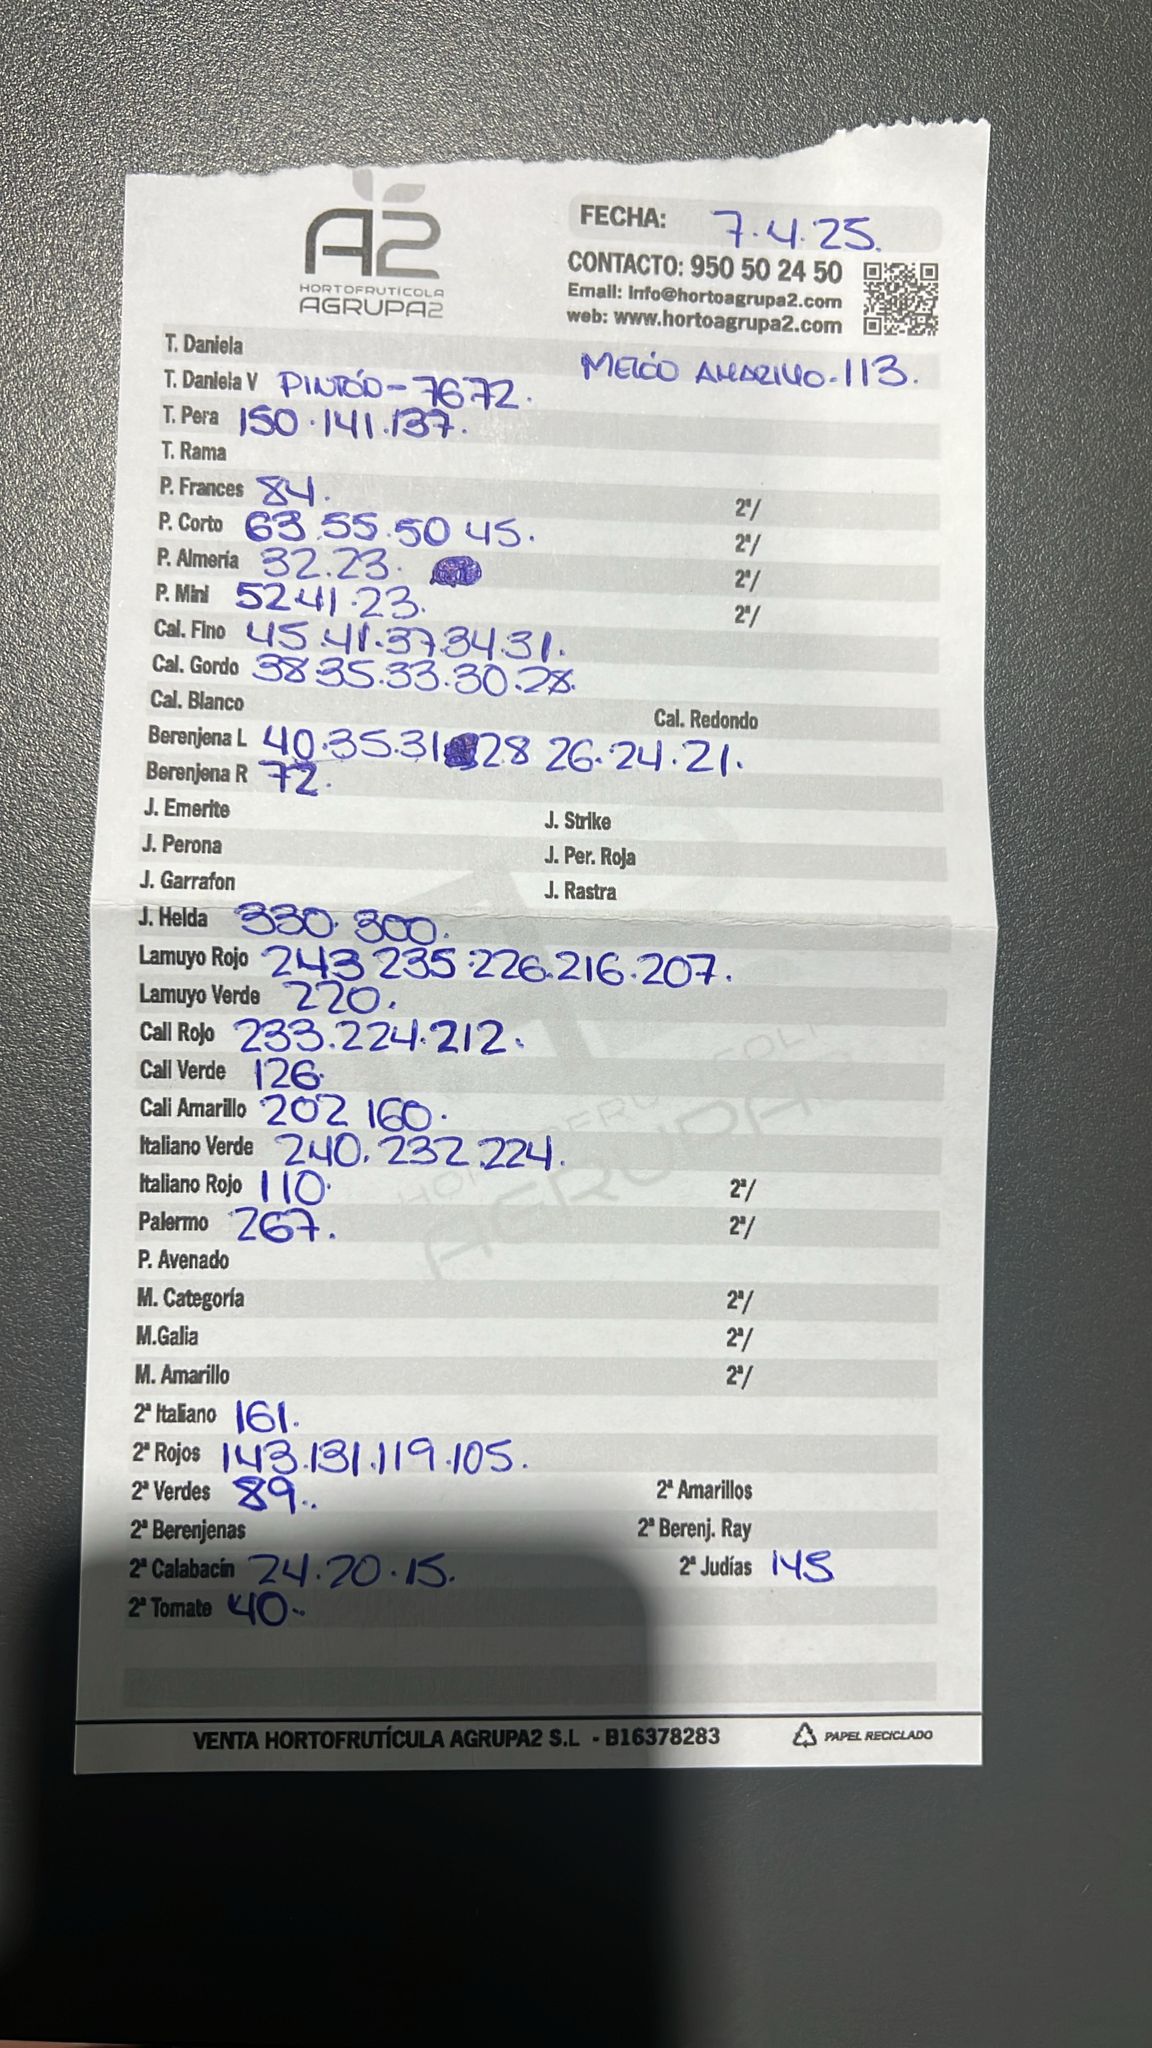 A2
HORTOFRUTÍCOLA
AGRUPA2
FECHA: 7.4.25.
CONTACTO: 950 50 24 50
Email: Info@hortoagrupa2.com
web: www.hortoagrupa2.com
T. Daniela
MELÓO AMARILLO.113.
T. Daniela V PINTÓO-7672.
T. Pera 150.141.137.
T. Rama
P. Frances 84. 2ª/
P. Corto 63.55.50 45. 2ª/
P. Almería 32.23. 2ª/
P. Mini 52.41.23. 2ª/
Cal. Fino 45.41.37.34.31.
Cal. Gordo 38.35.33.30.28.
Cal. Blanco Cal. Redondo
Berenjena L 40.35.31 28 26.24.21.
Berenjena R 72.
J. Emerite J. Strike
J. Perona J. Per. Roja
J. Garrafon J. Rastra
J. Helda 330. 300.
Lamuyo Rojo 243 235.226.216.207.
Lamuyo Verde 220.
Cali Rojo 233.224.212.
Cali Verde 126.
Cali Amarillo 202 160.
Italiano Verde 240.232.224.
Italiano Rojo 110. 2ª/
Palermo 267. 2ª/
P. Avenado
M. Categoría 2ª/
M.Galia 2ª/
M. Amarillo 2ª/
2ª Italiano 161.
2ª Rojos 143.131.119.105.
2ª Verdes 89.. 2ª Amarillos
2ª Berenjenas 2ª Berenj. Ray
2ª Calabacín 24.20.15. 2ª Judías 145
2ª Tomate 40..
VENTA HORTOFRUTÍCULA AGRUPA2 S.L - B16378283 PAPEL RECICLADO